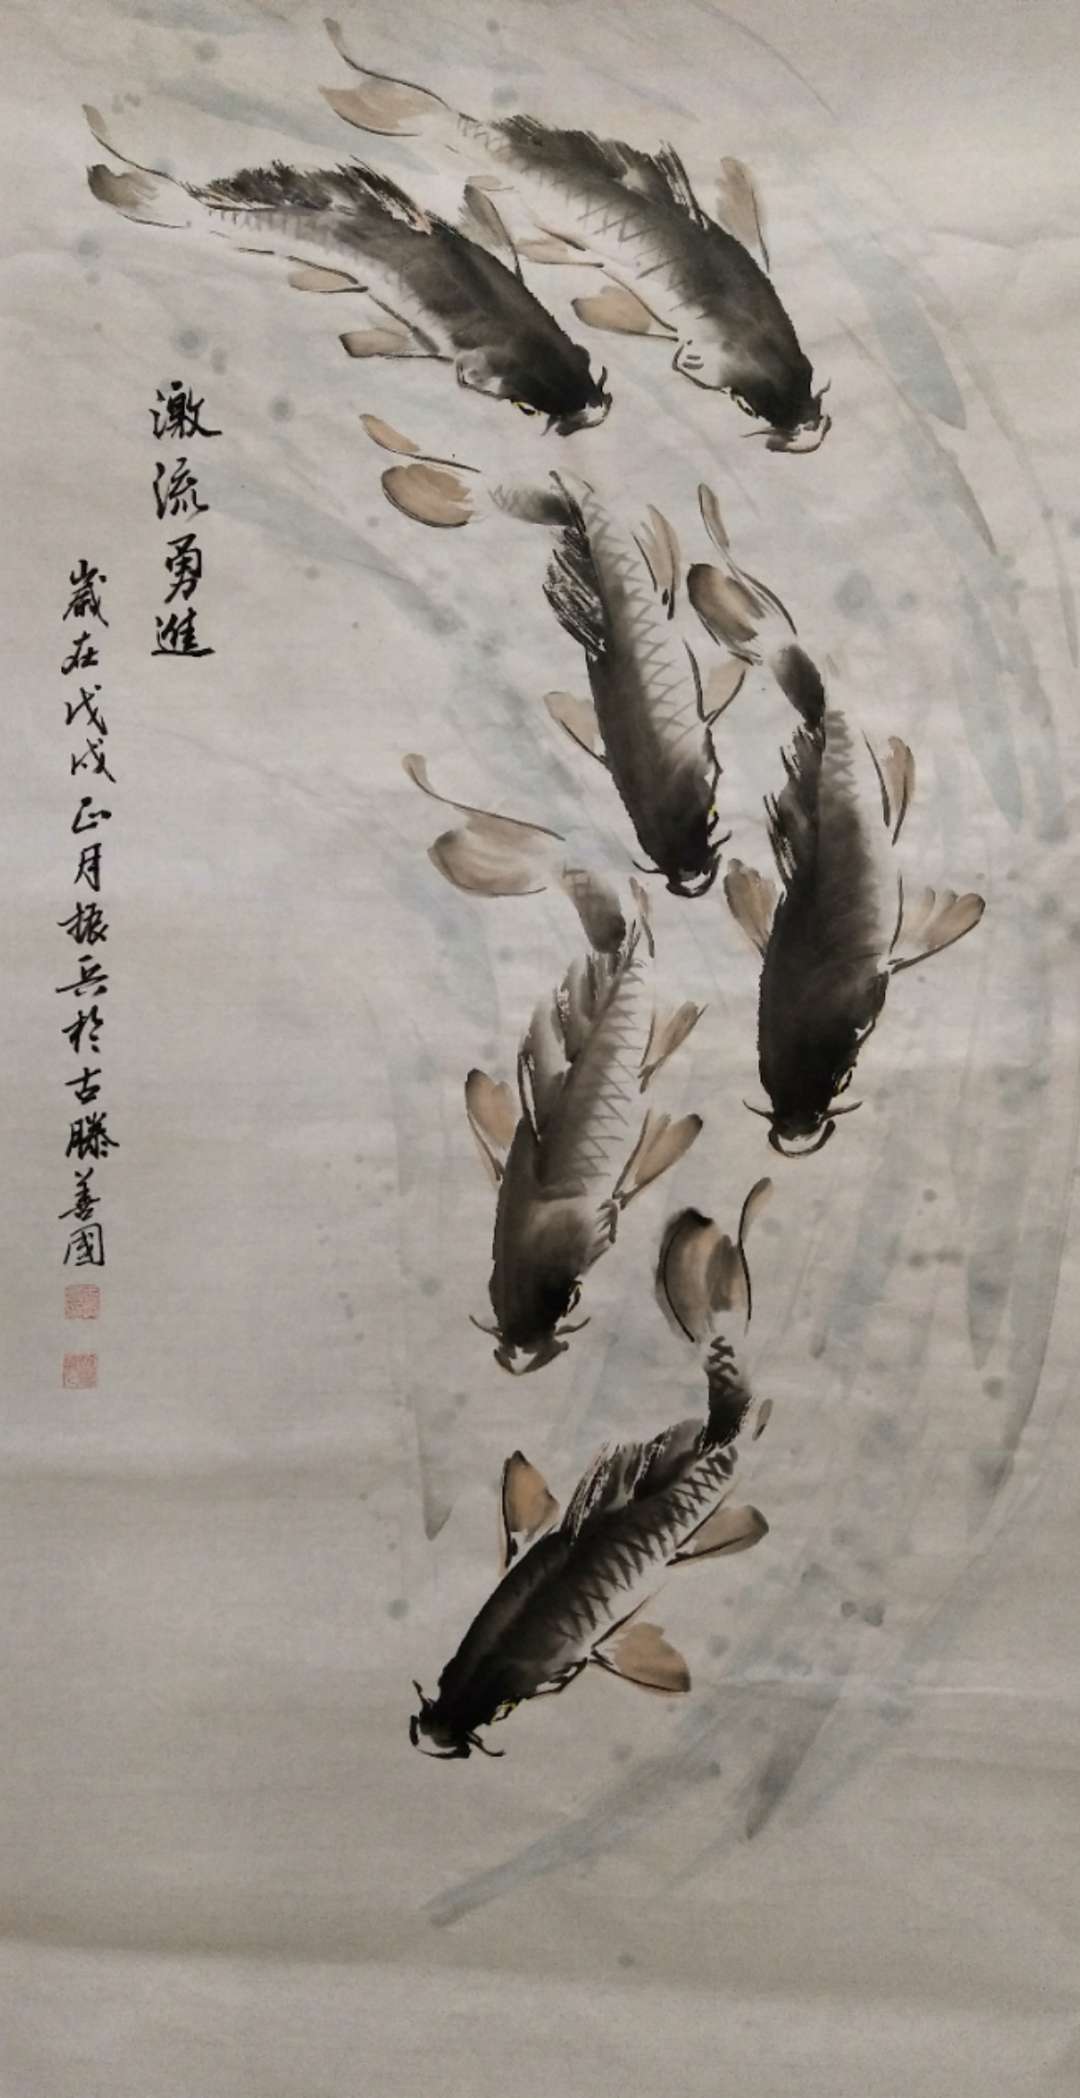 激流勇進
歲在戊戌正月振兵於古滕善國